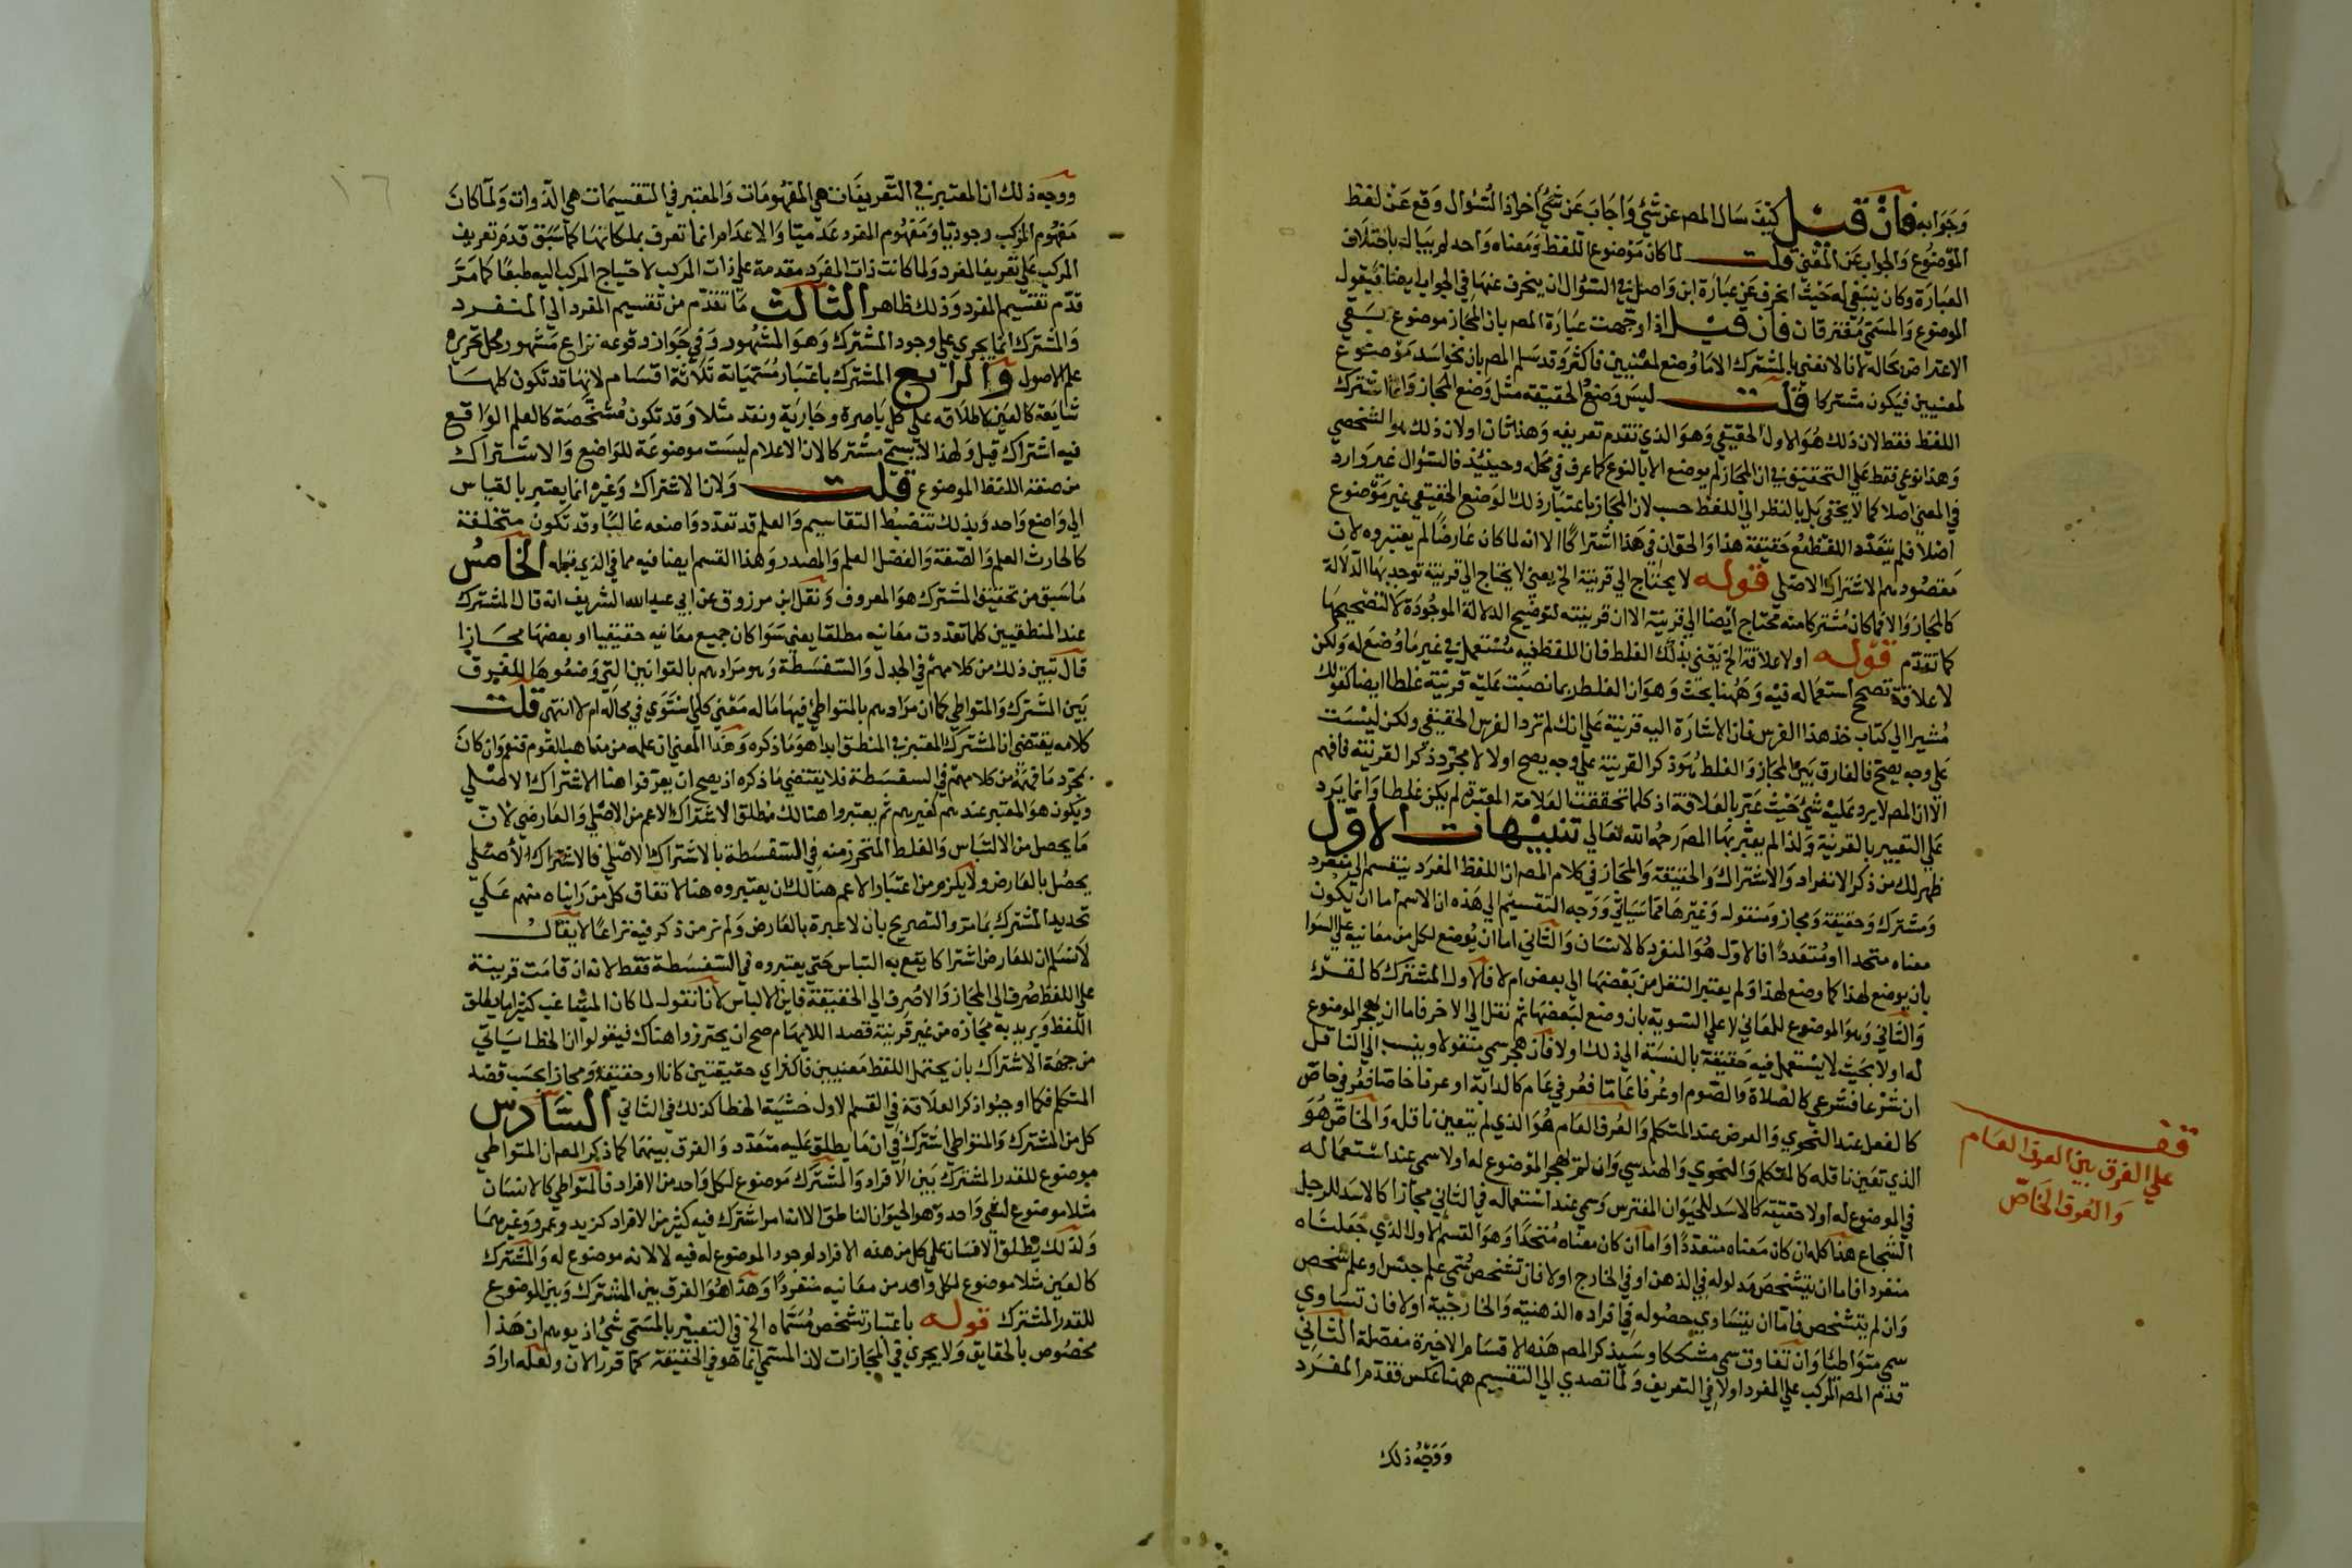 وجوابه فان قيل كيف سال المص عن شي واجاب عن شي اخر اذ السؤال وقع عن لفظ
الموضوع والجواب عن المعنى قلت لما كان موضوع اللفظ ومعناه واحد لم يبال باختلاف
العبارة وكان ينبغي له حيث انحرف عن عبارة ابن واصل في السؤال ان ينحرف عنها في الجواب ايضا فيقول
الموضوع والمسمى مفترقان فان قيل اذا وجهت عبارة المص بان المجاز موضوع بقي
الاعتراض بحاله لانا لا نعني بالمشترك الا ما وضع لمعنيين فاكثر وقد سلم المص بان نحو اسد موضوع
لمعنيين فيكون مشتركا قلت ليس وضع الحقيقة مثل وضع المجاز وانما اشترك
اللفظ فقط لان ذلك هو الاول الحقيقي وهو الذي تقدم تعريفه وهذا ثان اولان ذلك هو الشخصي
وهذا نوعي فقط على التحقيق في ان المجاز لم يوضع الا بالنوع كما عرف في محله وحينئذ فالسؤال غير وارد
في المعنى اصلا كما لا يخفى بل بالنظر الى اللفظ حسب لان المجاز باعتبار ذلك الوضع الحقيقي غير موضوع
اصلا فلم يتعدد اللفظ مع حقيقة هذا والحق ان في هذا اشتراكا الا انه لما كان عارضا لم يعتبروه لان
مقصودهم الاشتراك الاصلي قوله لا يحتاج الى قرينة الخ يعني لا يحتاج الى قرينة توجد بها الدلالة
كالمجاز والا فما كان مشتركا منه محتاج ايضا الى قرينة الا ان قرينته لتوضيح الدلالة الموجودة لا لتصحيحها
كما تقدم قوله او لا علاقة الخ يعني بذلك الغلط فان اللفظ فيه مستعمل في غير ما وضع له ولكن
لا علاقة تصحح استعماله فيه وههنا بحث وهو ان الغلط ربما نصبت عليه قرينة غلطا ايضا كقولك
مشيرا الى كتاب خذ هذا الفرس فان الاشارة اليه قرينة على انك لم ترد الفرس الحقيقي ولكن ليست
على وجه يصح فالفارق بين المجاز والغلط هو ذكر القرينة على وجه يصح اولا لا مجرد ذكر القرينة فافهم
الا ان المص لا يرد عليه شي حيث عبر بالعلاقة اذ كلما تحققت العلامة المعتبرة لم يكن غلطا وانما يرد
على التعبير بالقرينة ولذا لم يعبر بها المص رحمه الله تعالى تنبيهات الاول
ظهر لك من ذكر الانفراد والاشتراك والحقيقة والمجاز في كلام المص ان اللفظ المفرد ينقسم الى منفرد
ومشترك وحقيقة ومجاز ومنقول وغيرها مما سياتي ووجه التقسيم الى هذه ان الاسم اما ان يكون
معناه متحدا او متعددا فالاول هو المنفرد كالانسان والثاني اما ان يوضع لكل من معانيه على السوا
بان يوضع لهذا كما وضع لهذا ولم يعتبر النقل من بعضها الى بعض ام لا فالاول المشترك كالقرء
والثاني وهو الموضوع للمعاني لا على التسوية بان وضع لبعضها ثم نقل الى الاخر فاما ان يهجر الموضوع
له اولا بحيث لا يستعمل فيه حقيقة بالنسبة الى ذلك اولا فان هجر سمي منقولا وينسب الى الناقل
ان شرعا فشرعي كالصلاة والصوم او عرفا عاما فعرفي عام كالدابة او عرفا خاصا فعرفي خاص
كالفعل عند النحوي والعرض عند المتكلم والعرف العام هو الذي لم يتعين ناقله والخاص هو
الذي تعين ناقله كالمتكلم والنحوي والهندسي وان لم يهجر الموضوع له اولا سمي عند استعماله
في الموضوع له اولا حقيقة كالاسد للحيوان المفترس وسمي عند استعماله في الثاني مجازا كالاسد للرجل
الشجاع هذا كله ان كان معناه متعددا واما ان كان معناه متحدا وهو القسم الاول الذي جعلناه
منفردا فاما ان يتشخص مدلوله في الذهن او في الخارج اولا فان تشخص سمي علم جنس او علم شخص
وان لم يتشخص فاما ان يتساوى حصوله في افراده الذهنية والخارجية اولا فان تساوى
سمي متواطيا وان تفاوت سمي مشككا وسيذكر المص هذه الاقسام الاخيرة مفصلة الثاني
قدم المص المركب على المفرد اولا في التعريف ولما تصدى الى التقسيم ههنا عكس فقدم المفرد
ووجه ذلك
قف
على الفرق بين العرف العام
والعرف الخاص
١٦
ووجه ذلك ان المعتبر في التعريفات هي المفهومات والمعتبر في التقسيمات هي الذوات ولما كان
مفهوم المركب وجوديا ومفهوم المفرد عدميا والاعدام انما تعرف بملكاتها كما سبق قدم تعريف
المركب على تعريف المفرد ولما كانت ذات المفرد مقدمة على ذات المركب لاحتياج المركب اليه طبعا كما مر
قدم تقسيم المفرد وذلك ظاهر الثالث ما تقدم من تقسيم المفرد الى المنفرد
والمشترك انما يجري على وجود المشترك وهو المشهور وفي جواز وقوعه نزاع مشهور محل تحريره
علم الاصول والرابع المشترك باعتبار مسمياته ثلاثة اقسام لانها قد تكون كلها
شايعة كالعين لاطلاقه على كل باصرة وجارية ونقد مثلا وقد تكون مشخصة كالعلم الواقع
فيه اشتراك قيل ولهذا لا يسمى مشتركا لان الاعلام ليست موضوعة للواضع والاشتراك
من صفة اللفظ الموضوع قلت ولان الاشتراك وغيره انما يعتبر بالقياس
الى واضع واحد وبذلك تنضبط التقاسيم والعلم قد تعدد واضعه غالبا وقد تكون مختلفة
كالحارث العلم والصفة والفضل العلم والمصدر وهذا القسم ايضا فيه مما في الذي قبله الخامس
ما سبق من تحقيق المشترك هو المعروف ونقل ابن مرزوق عن ابي عبد الله الشريف انه قال المشترك
عند المنطقيين كلما تعددت معانيه مطلقا يعني سوا كان جميع معانيه حقيقيا او بعضها مجازا
قال تبين ذلك من كلامهم في الجدل والسفسطة وهو مرادهم بالقوانين التي وضعوها للفرق
بين المشترك والمتواطي كما ان مرادهم بالمتواطي فيها ما له معنى كلي استوى في محاله ام لا انتهى قلت
كلامه يقتضي ان المشترك المعتبر في المنطق ابدا هو ما ذكره وهذا المعنى ان علمه من مذاهب القوم فنعم وان كان
بمجرد ما فهمه من كلامهم في السفسطة فلا يقتضي ما ذكره اذ يصح ان يعرفوا هنا الاشتراك الاصلي
ويكون هو المعتبر عندهم كغيرهم ثم يعتبروا هنالك مطلق الاشتراك الاعم من الاصلي والعارضي لان
ما يحصل من الالتباس والغلط المتحرز منه في السفسطة بالاشتراك الاصلي فالاشتراك الاصلي
يحصل بالعارض ولا يلزم من اعتبار الاعم هنالك ان يعتبروه هنا لاتفاق كل من رايناه منهم على
تحديد المشترك بما مر والتصريح بان لا عبرة بالعارض ولم نر من ذكر فيه نزاعا لا يقال
لا نسلم ان للعارض اشتراكا يقع به التباس حتى يعتبروه في السفسطة فقط لانه ان قامت قرينة
على اللفظ صرف الى المجاز والا صرف الى الحقيقة فاين الالباس لانا نقول لما كان المشاغب كثيرا ما يطلق
اللفظ ويريد به مجازه من غير قرينة قصد الابهام صح ان يحترزوا هناك فيقولوا ان الخطا ياتي
من جهة الاشتراك بان يحتمل اللفظ معنيين فاكثر اي حقيقتين كانا او حقيقة ومجازا بحسب قصد
المتكلم فكما اوجبوا ذكر العلاقة في القسم الاول خشية الخطا كذلك في الثاني السادس
كل من المشترك والمتواطي اشترك في ان ما يطلق عليه متعدد والفرق بينهما كما ذكر المص ان المتواطي
موضوع للقدر المشترك بين الافراد والمشترك موضوع لكل واحد من الافراد فالمتواطي كالانسان
مثلا موضوع لشي واحد وهو الحيوان الناطق الا انه امر اشترك فيه كثير من الافراد كزيد وعمرو وغيرهما
ولذلك يطلق الانسان على كل من هذه الافراد لوجود الموضوع له فيه لا لانه موضوع له والمشترك
كالعين مثلا موضوع لكل واحد من معانيه منفردا وهذا هو الفرق بين المشترك وبين الموضوع
للقدر المشترك قوله باعتبار تشخص مسماه الخ في التعبير بالمسمى شي اذ يوهم ان هذا
مخصوص بالحقايق ولا يجري في المجازات لان المسمى انما هو في الحقيقة كما قرر الان ولعله اراد